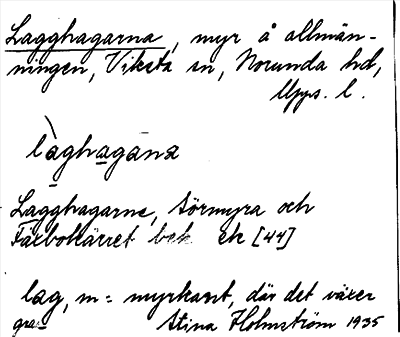 Lagghagarna, myr å allmän-
ningen, Viksta sn, Norunda hd,
Upps. l.
làghagana
Lagghagarna, Sörmyra och
Färbokärret bek. ek [44]
lag, m = myrkant, där det växer
gräs Stina Holmström 1935